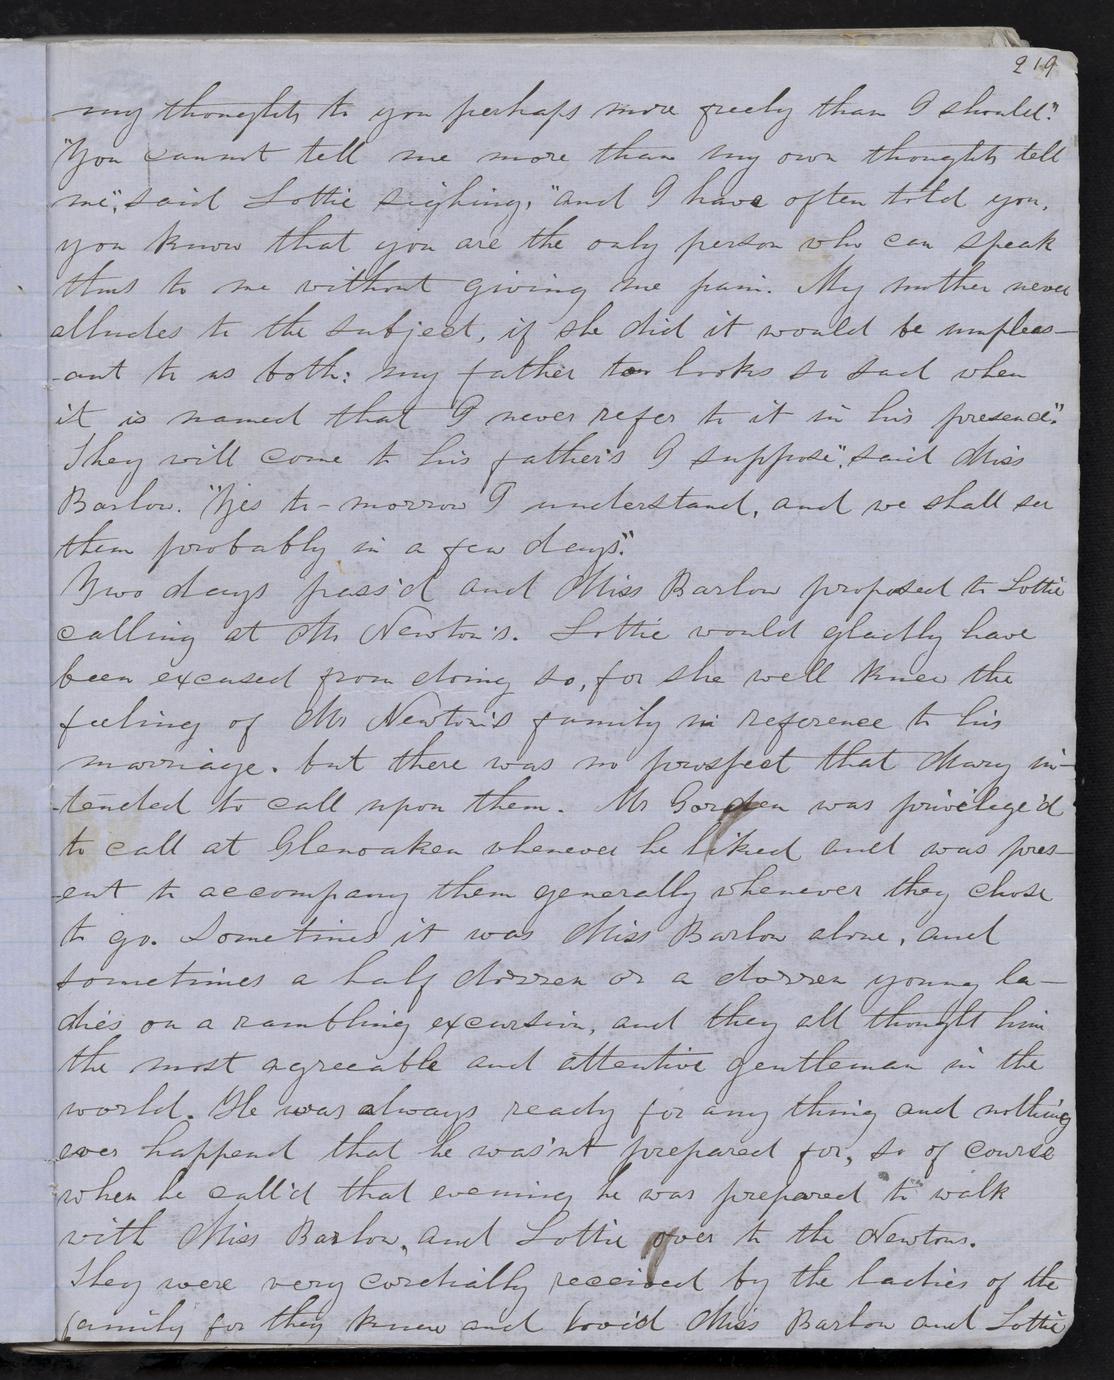 219
my thoughts to you perhaps more freely than I should."
"You cannot tell me more than my own thoughts tell
me", said Lottie sighing, "and I have often told you,
you know that you are the only person who can speak
thus to me without giving me pain. My mother never
alludes to the subject, if she did it would be unpleas-
ant to us both: my father too looks so sad when
it is named that I never refer to it in his presence".
They will come to his father's I suppose", said Miss
Barlow. "Yes to-morrow I understand, and we shall see
them probably in a few days".
Two days pass'd and Miss Barlow proposed to Lottie
calling at Mr Newton's. Lottie would gladly have
been excused from doing so, for she well knew the
feeling of Mr Newton's family in reference to his
marriage. but there was no prospect that Mary in-
tended to call upon them. Mr Gorden was privilege'd
to call at Glenoaken whenever he liked and was pres-
ent to accompany them generally whenever they chose
to go. Sometimes it was Miss Barlow alone, and
sometimes a half dozzen or a dozzen young la-
dies on a rambling excursion, and they all thought him
the most agreeable and attentive gentleman in the
world. He was always ready for any thing and nothing
ever happend that he was'nt prepared for, so of course
when he call'd that evening he was prepared to walk
with Miss Barlow, and Lottie over to the Newtons.
They were very cordially received by the ladies of the
family for they knew and lov'd Miss Barlow and Lottie